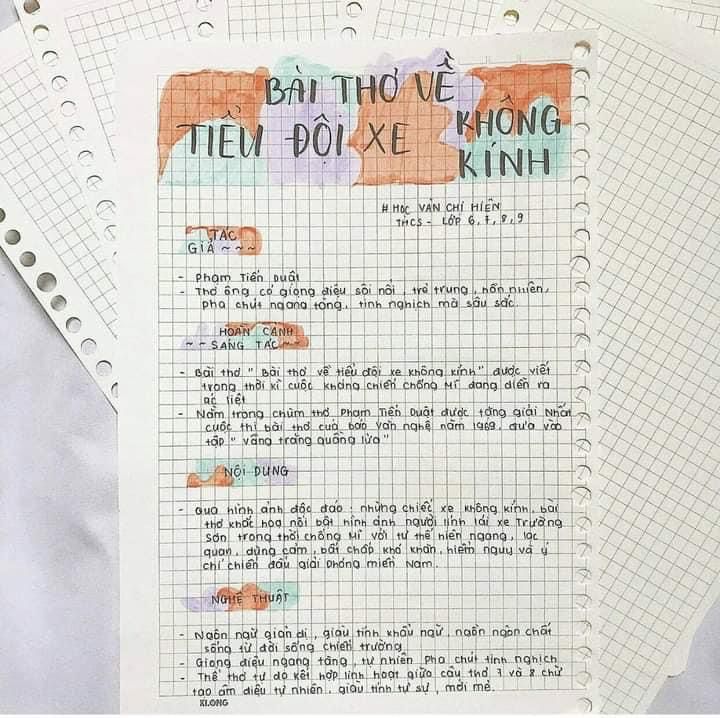 BÀI THƠ VỀ
TIỂU ĐỘI XE KHÔNG
KÍNH
# HỌC VĂN CHỊ HIÊN
THCS - LỚP 6,7,8,9
TÁC
GIẢ ~ ~ ~
- Phạm Tiến Duật
- Thơ ông có giọng điệu sôi nổi, trẻ trung, hồn nhiên,
pha chút ngang tàng, tinh nghịch mà sâu sắc.
HOÀN CẢNH
~ ~ SÁNG TÁC ~ ~
- Bài thơ " Bài thơ về tiểu đội xe không kính" được viết
trong thời kì cuộc kháng chiến chống Mĩ đang diễn ra
ác liệt
- Nằm trong chùm thơ Phạm Tiến Duật được tặng giải Nhất
cuộc thi bài thơ của báo Văn nghệ năm 1969, đưa vào
tập " vầng trăng quầng lửa"
NỘI DUNG
- Qua hình ảnh độc đáo : những chiếc xe không kính, bài
thơ khắc họa nổi bật hình ảnh người lính lái xe Trường
Sơn trong thời chống Mĩ với tư thế hiên ngang, lạc
quan, dũng cảm, bất chấp khó khăn, hiểm nguy và ý
chí chiến đấu giải phóng miền Nam.
NGHỆ THUẬT
- Ngôn ngữ giản dị, giàu tính khẩu ngữ, ngồn ngộn chất
sống từ đời sống chiến trường
- Giọng điệu ngang tàng, tự nhiên pha chút tinh nghịch
- Thể thơ tự do kết hợp linh hoạt giữa câu thơ 7 và 8 chữ
tạo âm điệu tự nhiên, giàu tính tự sự, mới mẻ.
KLONG